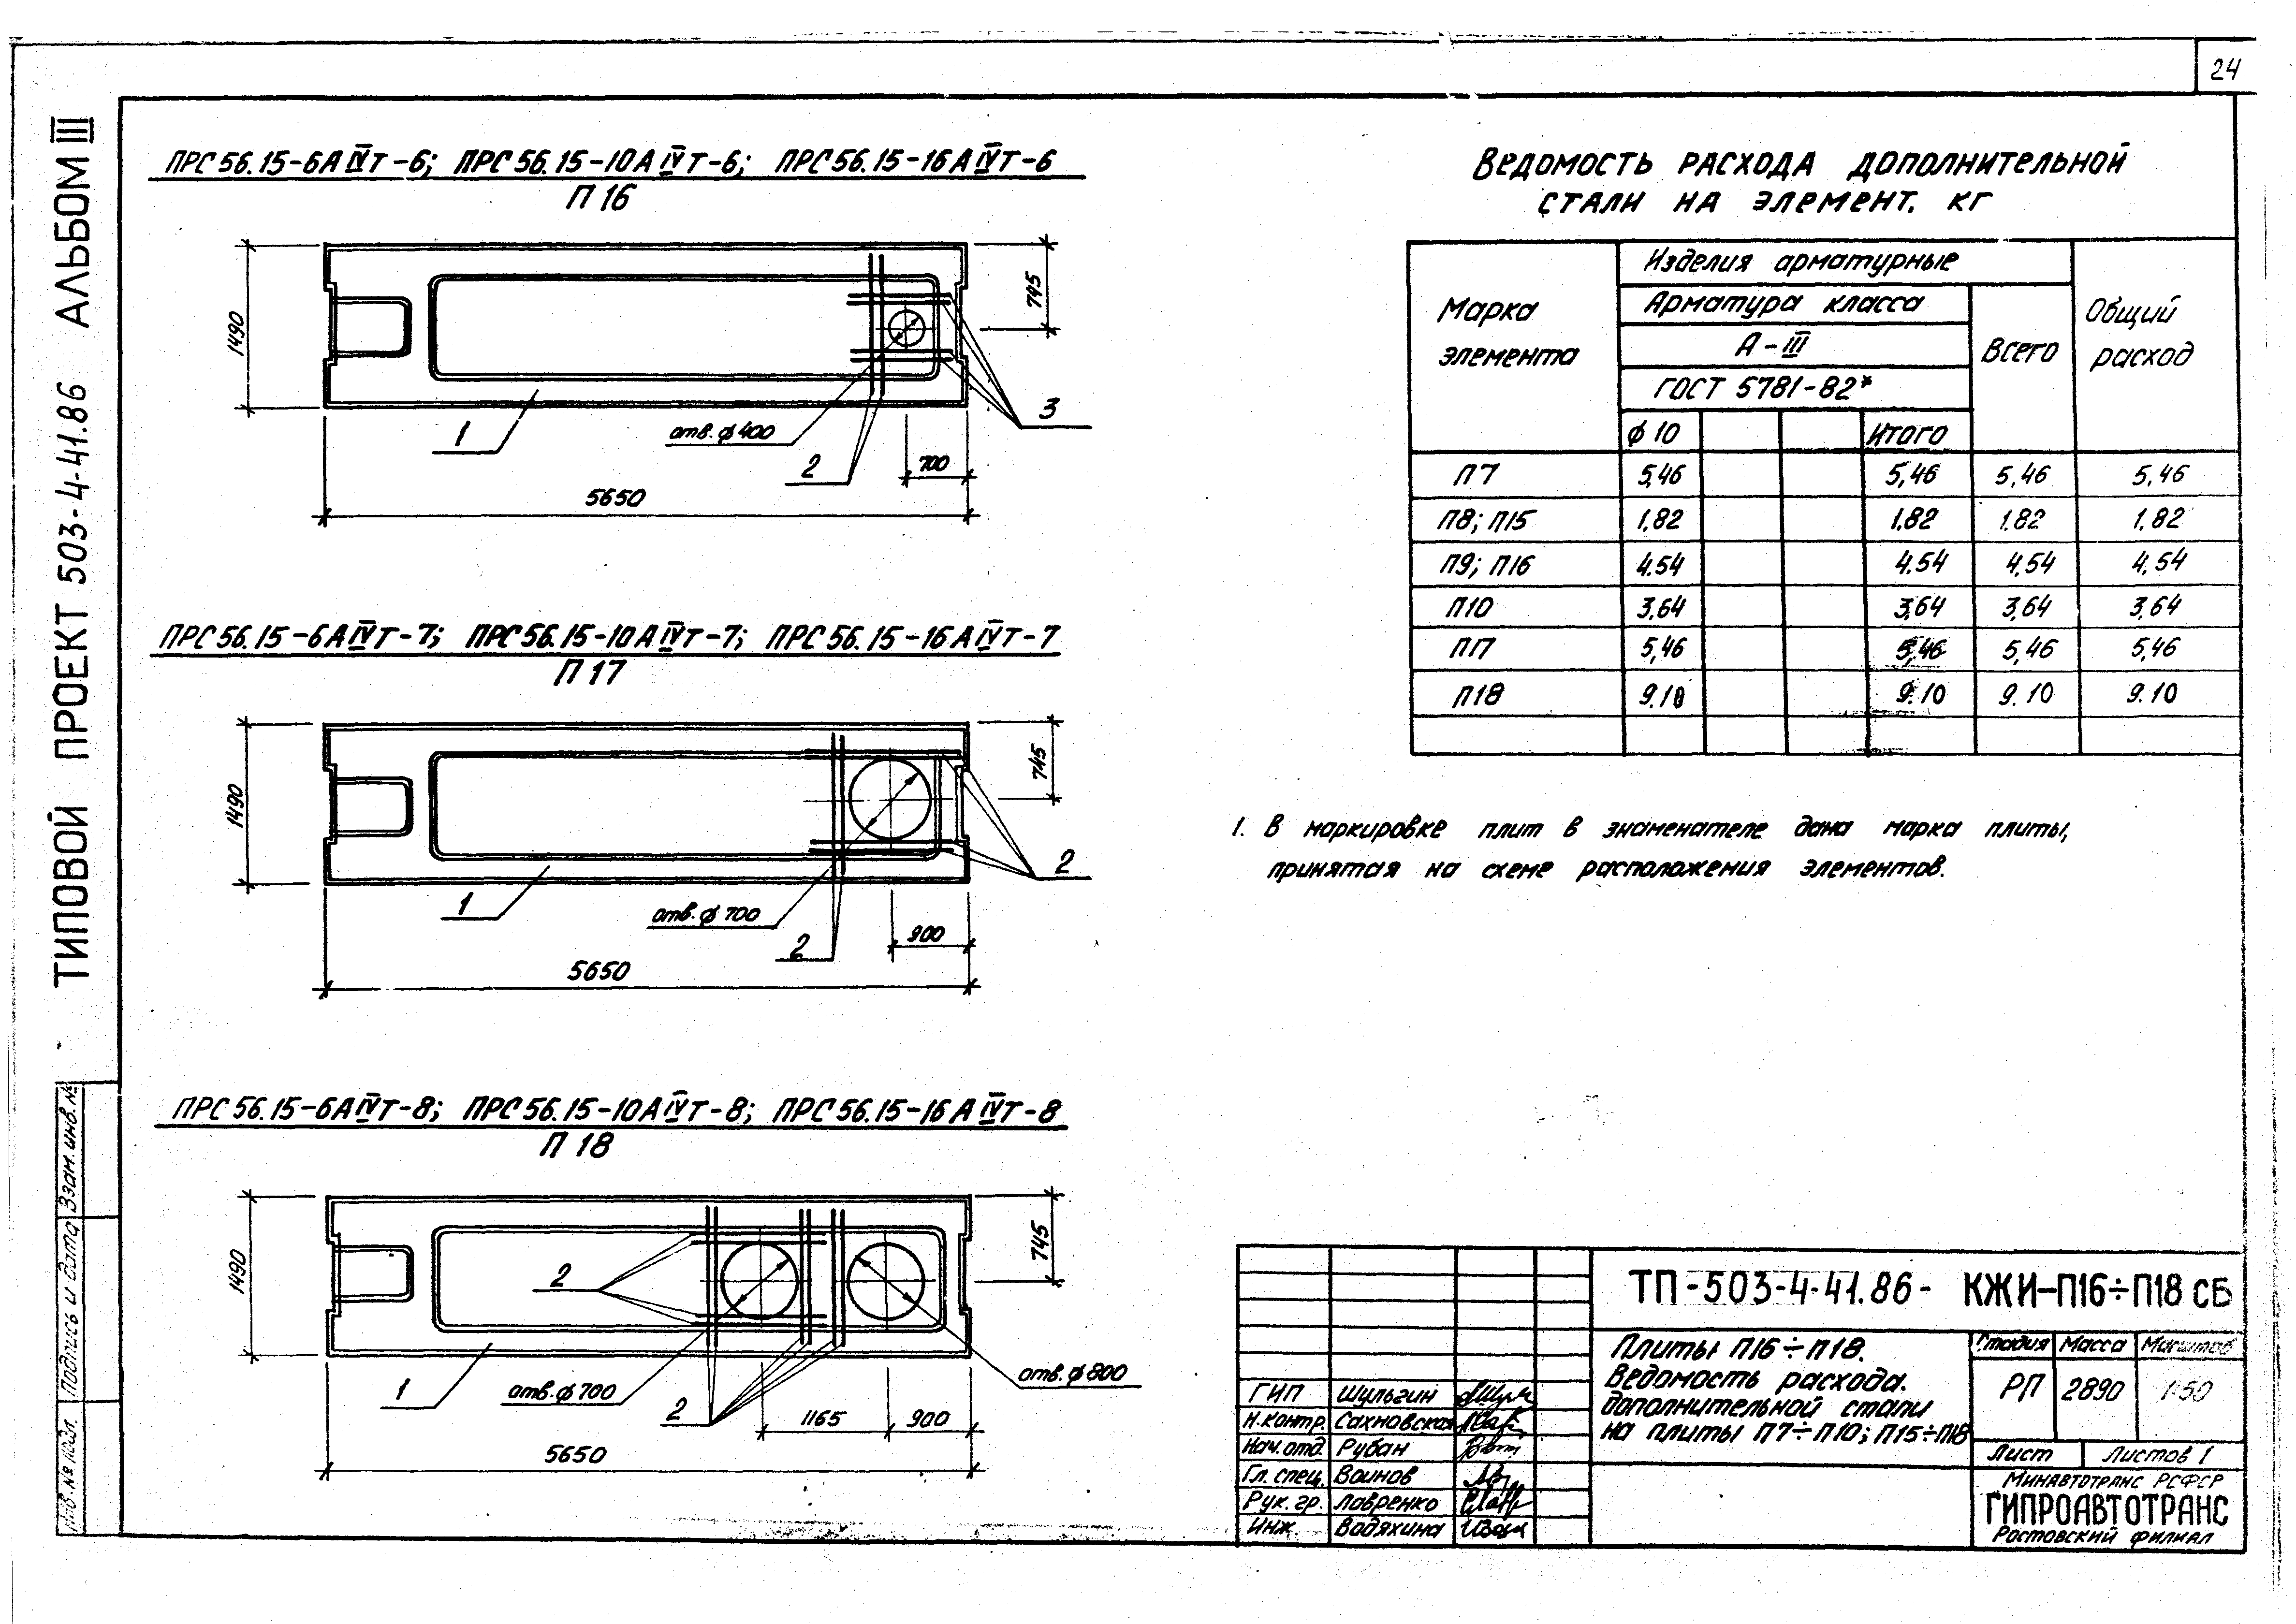 24
ТИПОВОЙ ПРОЕКТ 503-4-41.86 АЛЬБОМ III
ПРС 56.15-6А IVТ-6; ПРС 56.15-10А IVТ-6; ПРС 56.15-16А IVТ-6
П 16
1490
745
1
отв. ϕ 400
2
3
700
5650
ПРС 56.15-6А IVТ-7; ПРС 56.15-10А IVТ-7; ПРС 56.15-16А IVТ-7
П 17
1490
745
1
отв. ϕ 700
2
2
900
5650
ПРС 56.15-6А IVТ-8; ПРС 56.15-10А IVТ-8; ПРС 56.15-16А IVТ-8
П 18
1490
745
2
1
отв. ϕ 700
2
отв. ϕ 800
1165
900
5650
Ведомость расхода дополнительной
стали на элемент, кг
Марка элемента
Изделия арматурные
Арматура класса
А-III
ГОСТ 5781-82*
Всего
Общий расход
ϕ 10 Итого
П7 5,46 5,46 5,46 5,46
П8; П15 1.82 1.82 1.82 1.82
П9; П16 4.54 4.54 4.54 4.54
П10 3,64 3,64 3,64 3,64
П17 5,46 5,46 5,46 5,46
П18 9.10 9.10 9.10 9.10
1. В маркировке плит в знаменателе дана марка плиты,
принятая на схеме расположения элементов.
ТП-503-4-41.86- КЖИ-П16÷П18 СБ
Плиты П16÷П18.
Ведомость расхода.
дополнительной стали
на плиты П7÷П10; П15÷П18
Стадия Масса Масштаб
РП 2890 1:50
Лист Листов 1
Минавтотранс РСФСР
ГИПРОАВТОТРАНС
Ростовский филиал
ГИП Шульгин
Н.контр. Сахновская
Нач.отд. Рубан
Гл. спец. Воинов
Рук. гр. Лавренко
Инж Водяхина
Взам. инв. №
Подпись и дата
Инв. № подл.